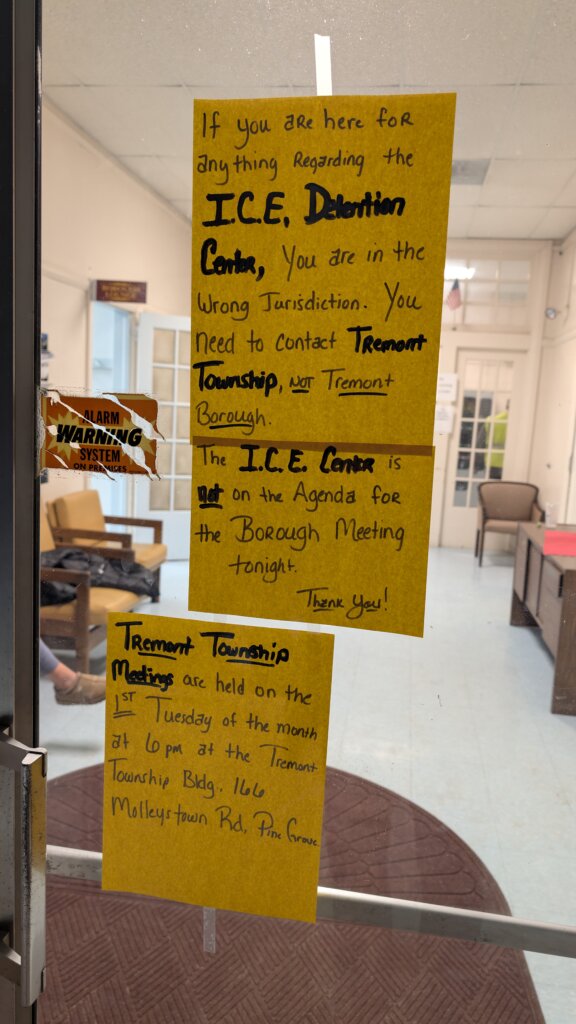 If you are here for
anything Regarding the
I.C.E. Detention
Center, You are in the
Wrong Jurisdiction. You
need to contact Tremont
Township, NOT Tremont
Borough.
The I.C.E. Center is
not on the Agenda for
the Borough Meeting
tonight.
Thank You!
Tremont Township
Meetings are held on the
1ST Tuesday of the month
at 6pm at the Tremont
Township Bldg. 166
Molleystown Rd, Pine Grove.
ALARM
WARNING
SYSTEM
ON PREMISES